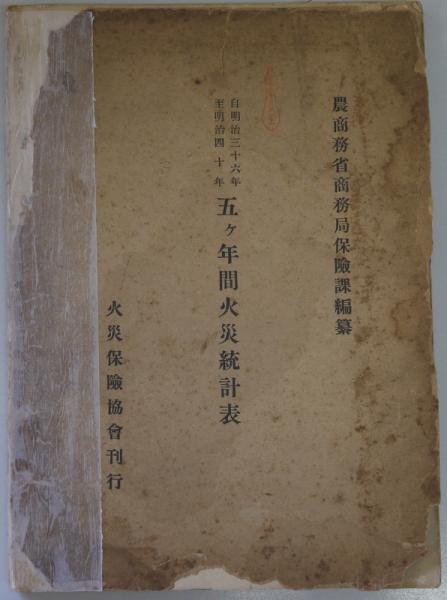 農商務省商務局保險課編纂
自明治三十六年
至明治四十年
五ヶ年間火災統計表
火災保險協會刊行